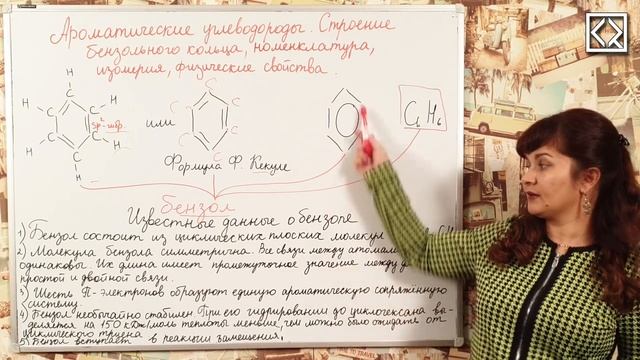 Ароматические углеводороды. Строение
бензольного кольца, номенклатура,
изомерия, физические свойства.
H
H C C H
sp²-гибр.
или
C₆H₆
Формула Ф. Кекуле
бензол
Известные данные о бензоле
1) Бензол состоит из циклических плоских молекул
2) Молекула бензола симметрична. Все связи между атомами
одинаковы. Их длина имеет промежуточное значение между
простой и двойной связи.
3) Шесть π-электронов образуют единую ароматическую сопряжённую
систему.
4) Бензол необычайно стабилен. При его гидрировании до циклогексана вы-
деляется на 150 кДж/моль теплоты меньше, чем можно было ожидать от
циклического триена
5) Бензол вступает в реакции замещения.